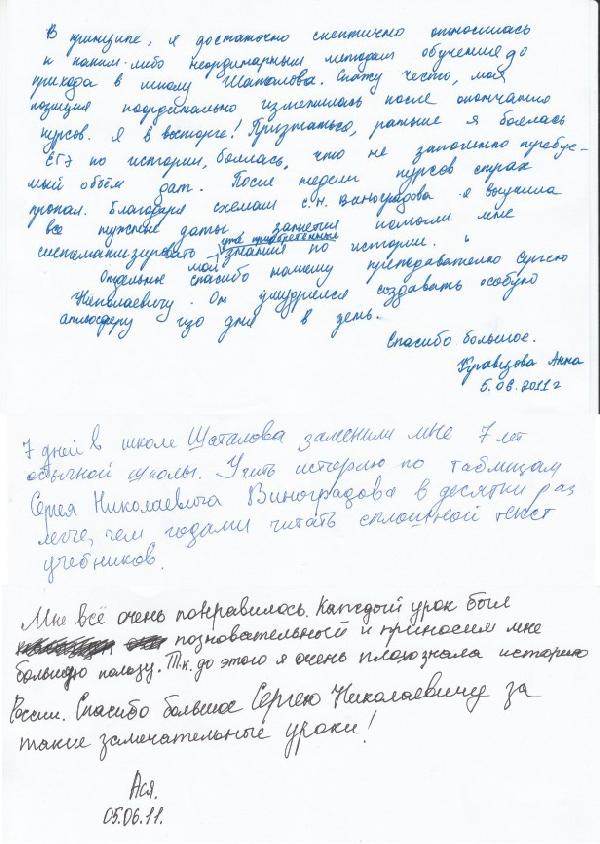 В принципе, я достаточно скептично относилась
к каким-либо неординарным методам обучения до
прихода в школу Шаталова. Скажу честно, моя
позиция кардинально изменилась после окончания
курсов. Я в восторге! Признаться, раньше я боялась
ЕГЭ по истории, боялась, что не запомню требуе-
мый объём дат. После недели курсов страх
пропал. Благодаря схемам С.Н. Виноградова я выучила
все нужные даты, занятия помогли мне
систематизировать мои уже приобретенные знания по истории.
Отдельное спасибо нашему преподавателю Сергею
Николаевичу. Он умудрился создавать особую
атмосферу изо дня в день.
Спасибо большое.
Кравцова Анна
5.06.2011г
7 дней в школе Шаталова заменили мне 7 лет
обычной школы. Учить историю по таблицам
Сергея Николаевича Виноградова в десятки раз
легче, чем годами читать сплошной текст
учебников.
Мне всё очень понравилось. Каждый урок был
позновательный и приносил мне
большую пользу. Т.к. до этого я очень плохо знала историю
России. Спасибо большое Сергею Николаевичу за
такие замечательные уроки!
Ася.
05.06.11.